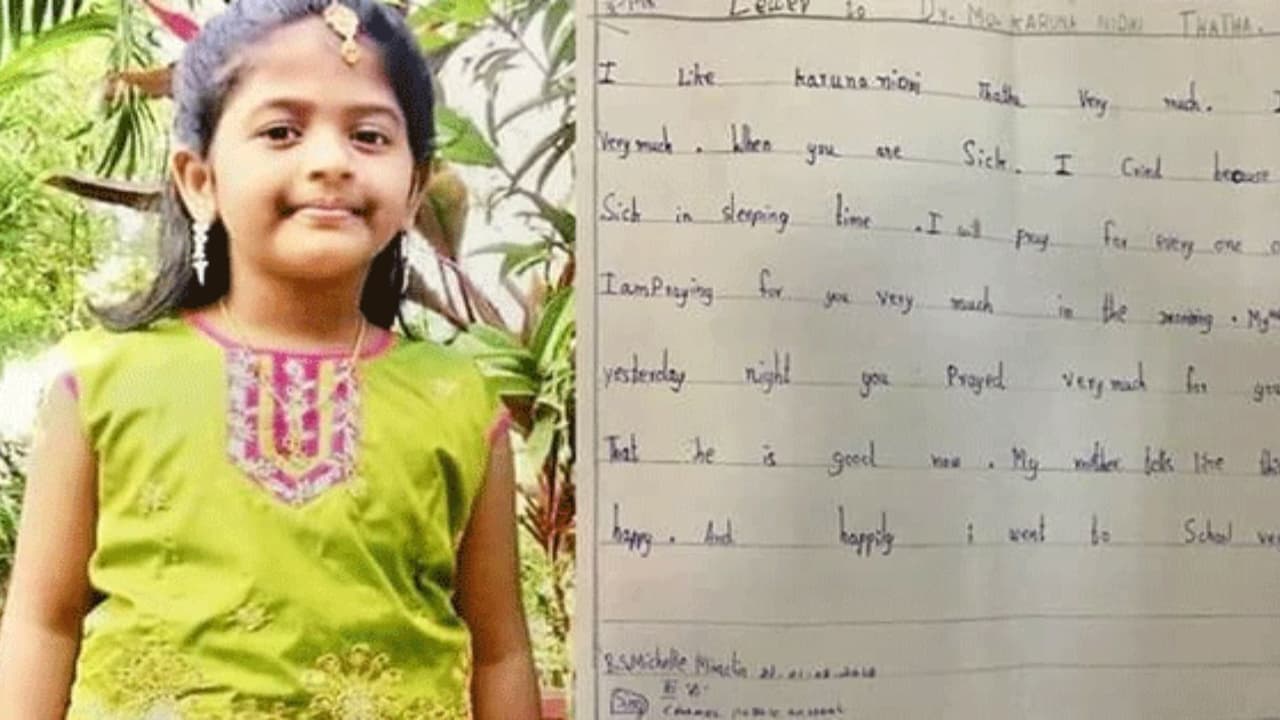 Letter to Dr. Mo. KARUNA NIDHI THATHA.
I Like karuna nidhi Thatha Very much. I
very much. When you are Sick. I Cried because
Sick in sleeping time. I will pray for every one
I am Praying for you very much in the morning. My
yesterday night you Prayed very much for you
That he is good now. My mother tells like this
happy. And happily i went to School very
Michelle
III